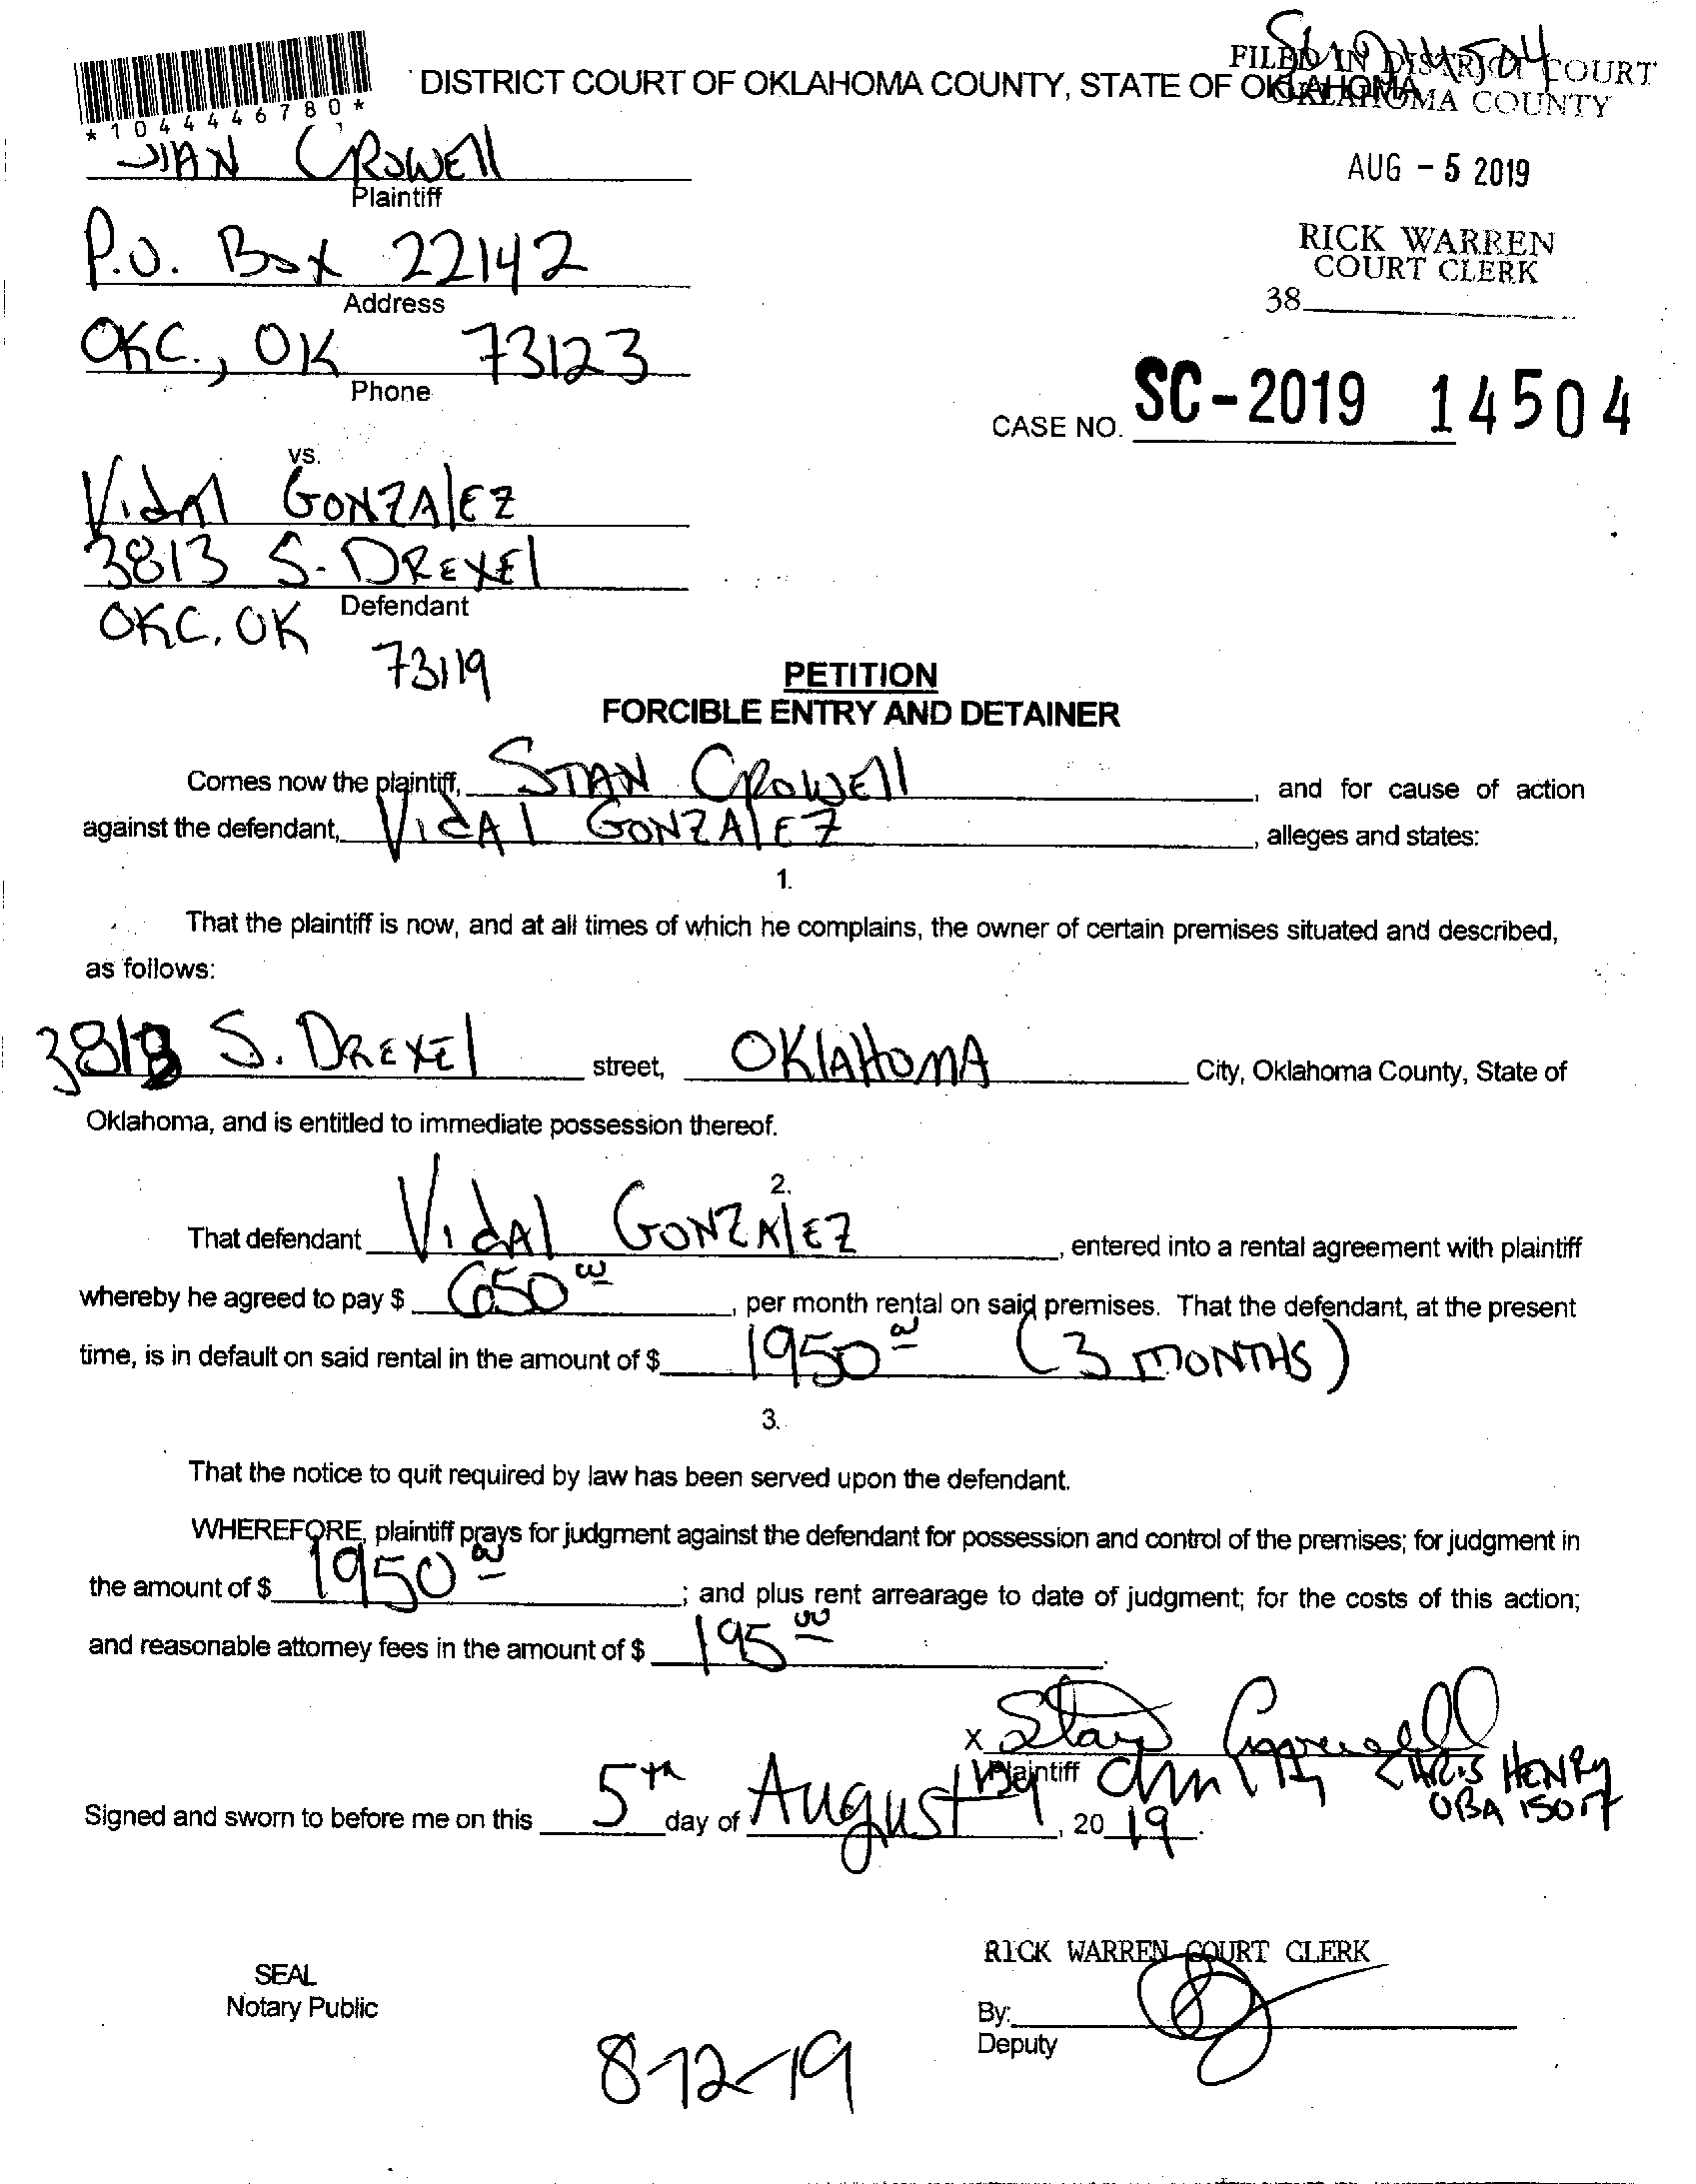 *1044446780*
DISTRICT COURT OF OKLAHOMA COUNTY, STATE OF OKLAHOMA
FILED IN DISTRICT COURT
OKLAHOMA COUNTY
AUG - 5 2019
RICK WARREN
COURT CLERK
38
STAN CROWEll
Plaintiff
P.O. Box 22142
Address
OKC., OK 73123
Phone
CASE NO. SC-2019 14504
vs.
VidAl GONZAlEZ
3813 S. DREXEl
Defendant
OKC, OK
73119
PETITION
FORCIBLE ENTRY AND DETAINER
Comes now the plaintiff, STAN CROWEll, and for cause of action
against the defendant, VidAl GONZAlEZ, alleges and states:
1.
That the plaintiff is now, and at all times of which he complains, the owner of certain premises situated and described,
as follows:
3813 S. DREXEl street, OKlAHOMA City, Oklahoma County, State of
Oklahoma, and is entitled to immediate possession thereof.
2.
That defendant VidAl GONZAlEZ, entered into a rental agreement with plaintiff
whereby he agreed to pay $ 650 00, per month rental on said premises. That the defendant, at the present
time, is in default on said rental in the amount of $ 1950 00 (3 MONTHS)
3.
That the notice to quit required by law has been served upon the defendant.
WHEREFORE, plaintiff prays for judgment against the defendant for possession and control of the premises; for judgment in
the amount of $ 1950 00; and plus rent arrearage to date of judgment; for the costs of this action;
and reasonable attorney fees in the amount of $ 195 00.
X Stan Crowell
Plaintiff
CHRIS HENRY
OBA 15017
Signed and sworn to before me on this 5th day of August, 2019.
RICK WARREN COURT CLERK
SEAL
Notary Public
By:
Deputy
8-12-19